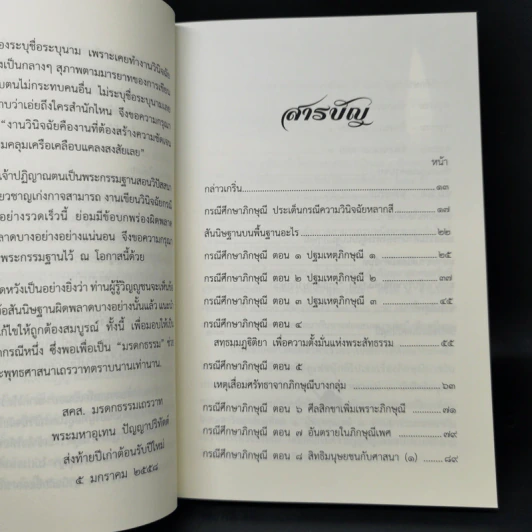 องระบุชื่อระบุนาม เพราะเคยทำงานวินิจฉัย
งเป็นกลางๆ สุภาพตามมารยาทของการเขียน
บตนไม่กระทบคนอื่น ไม่ระบุชื่อระบุนามเลย
าบว่าเอ่ยถึงใครสำนักไหน จึงขอความกรุณา
"งานวินิจฉัยคืองานที่ต้องสร้างความชัดเจน
มคลุมเครือเคลือบแคลงสงสัยเลย"
เจ้าปฏิญาณตนเป็นพระกรรมฐานสอนวิปัสสนา
ยวชาญเก่งกาจสามารถ งานเขียนวินิจฉัยกรณี
อย่างรวดเร็วนี้ ย่อมมีข้อบกพร่องผิดพลาด
ลาดบางอย่างอย่างแน่นอน จึงขอความกรุณา
พระกรรมฐานไว้ ณ โอกาสนี้ด้วย
ดหวังเป็นอย่างยิ่งว่า ท่านผู้รู้วิญญูชนจะเห็น
อสันนิษฐานผิดพลาดบางอย่างนั้นแล้ว แนะนำ
ก้ไขให้ถูกต้องสมบูรณ์ ทั้งนี้ เพื่อมอบให้เป็น
กรณีหนึ่ง ซึ่งพอเพื่อเป็น "มรดกธรรม"
ะพุทธศาสนาเถรวาทตราบนานเท่านาน.
สคส. มรดกธรรมเถรวาท
พระมหาอุเทน ปัญญาปริทัตต์
ส่งท้ายปีเก่าต้อนรับปีใหม่
๕ มกราคม ๒๕๕๘
สารบัญ
หน้า
กล่าวเกริ่น......๑๓
กรณีศึกษาภิกษุณี ประเด็นกรณีความวินิจฉัยหลากสี......๑๗
สันนิษฐานบนพื้นฐานอะไร......๒๒
กรณีศึกษาภิกษุณี ตอน ๑ ปฐมเหตุภิกษุณี ๑......๒๕
กรณีศึกษาภิกษุณี ตอน ๒ ปฐมเหตุภิกษุณี ๒......๓๗
กรณีศึกษาภิกษุณี ตอน ๓ ปฐมเหตุภิกษุณี ๓......๔๕
กรณีศึกษาภิกษุณี ตอน ๔
สทฺธมฺมฏฺฐิติยา เพื่อความตั้งมั่นแห่งพระสัทธรรม......๕๕
กรณีศึกษาภิกษุณี ตอน ๕
เหตุเสื่อมศรัทธาจากภิกษุณีบางกลุ่ม......๖๓
กรณีศึกษาภิกษุณี ตอน ๖ ศีลสิกขาเพิ่มเพราะภิกษุณี......๗๑
กรณีศึกษาภิกษุณี ตอน ๗ อันตรายในภิกษุณีเพศ......๗๙
กรณีศึกษาภิกษุณี ตอน ๘ สิทธิมนุษยชนกับศาสนา (๑)......๘๙